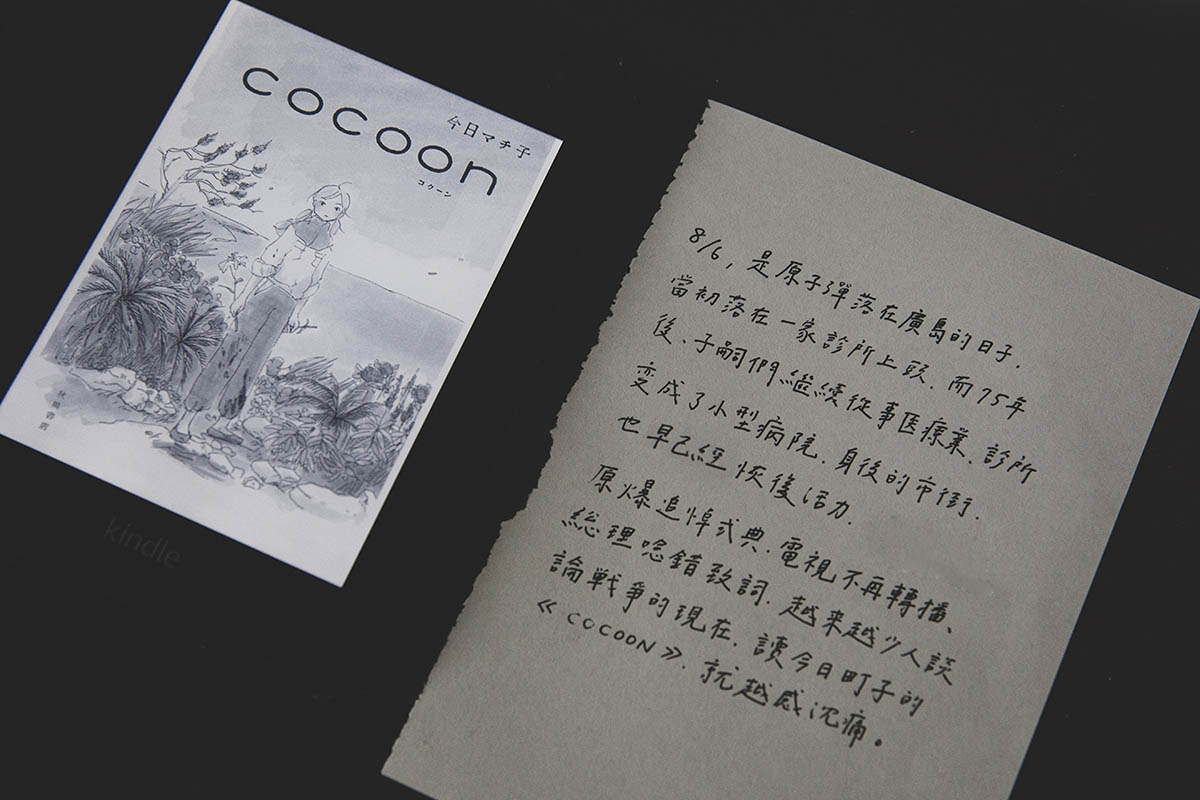 cocoon
今日マチ子
コクーン
秋田書店
kindle
8/6, 是原子彈落在廣島的日子.
當初落在一家診所上頭.而75年
後、子嗣們繼續從事医療業、診所
变成了小型病院.身後的市街.
也早已經恢後活力.
原爆追悼式典.電視不再轉播、
総理唸錯致詞.越来越少人談
論戦爭的現在.讀今日町子的
《COCOON》.就越感沉痛。